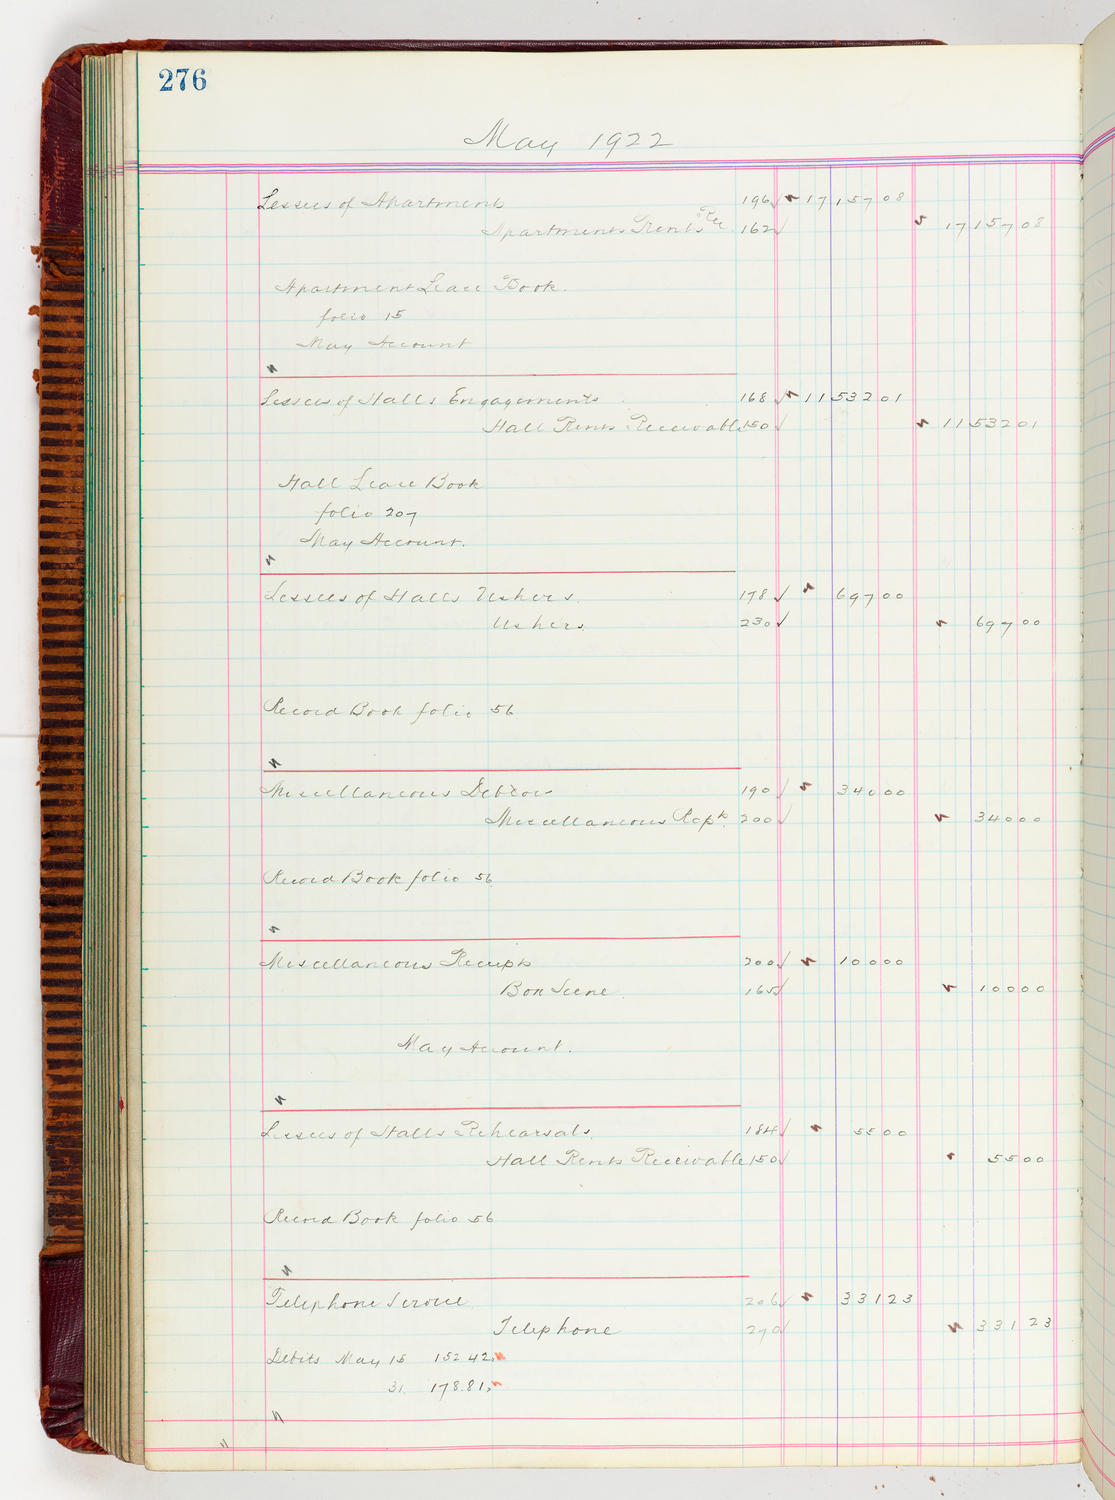 276
May 1922
Lessees of Apartments 196 17157 08
Apartments Rents Rec 162 17157 08
Apartment Lease Book.
folio 15
May Account
Lessees of Halls Engagements 168 11532 01
Hall Rents Receivable 150 11532 01
Hall Lease Book
folio 207
May Account.
Lessees of Halls Ushers 178 697 00
Ushers 230 697 00
Record Book folio 56
Miscellaneous Debtors 190 340 00
Miscellaneous Rcpts 200 340 00
Record Book folio 56
Miscellaneous Receipts 200 100 00
Bon Scene 165 100 00
May Account.
Lessees of Halls Rehearsals 184 55 00
Hall Rents Receivable 150 55 00
Record Book folio 56
Telephone Service 206 331 23
Telephone 270 331 23
Debits May 15 152 42
31. 178.81